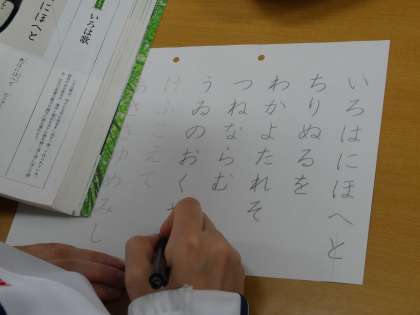 いろはにほへと
ちりぬるを
わかよたれそ
つねならむ
うゐのおくや
けふこえて
あさきゆめみし
いろは歌
にほへと